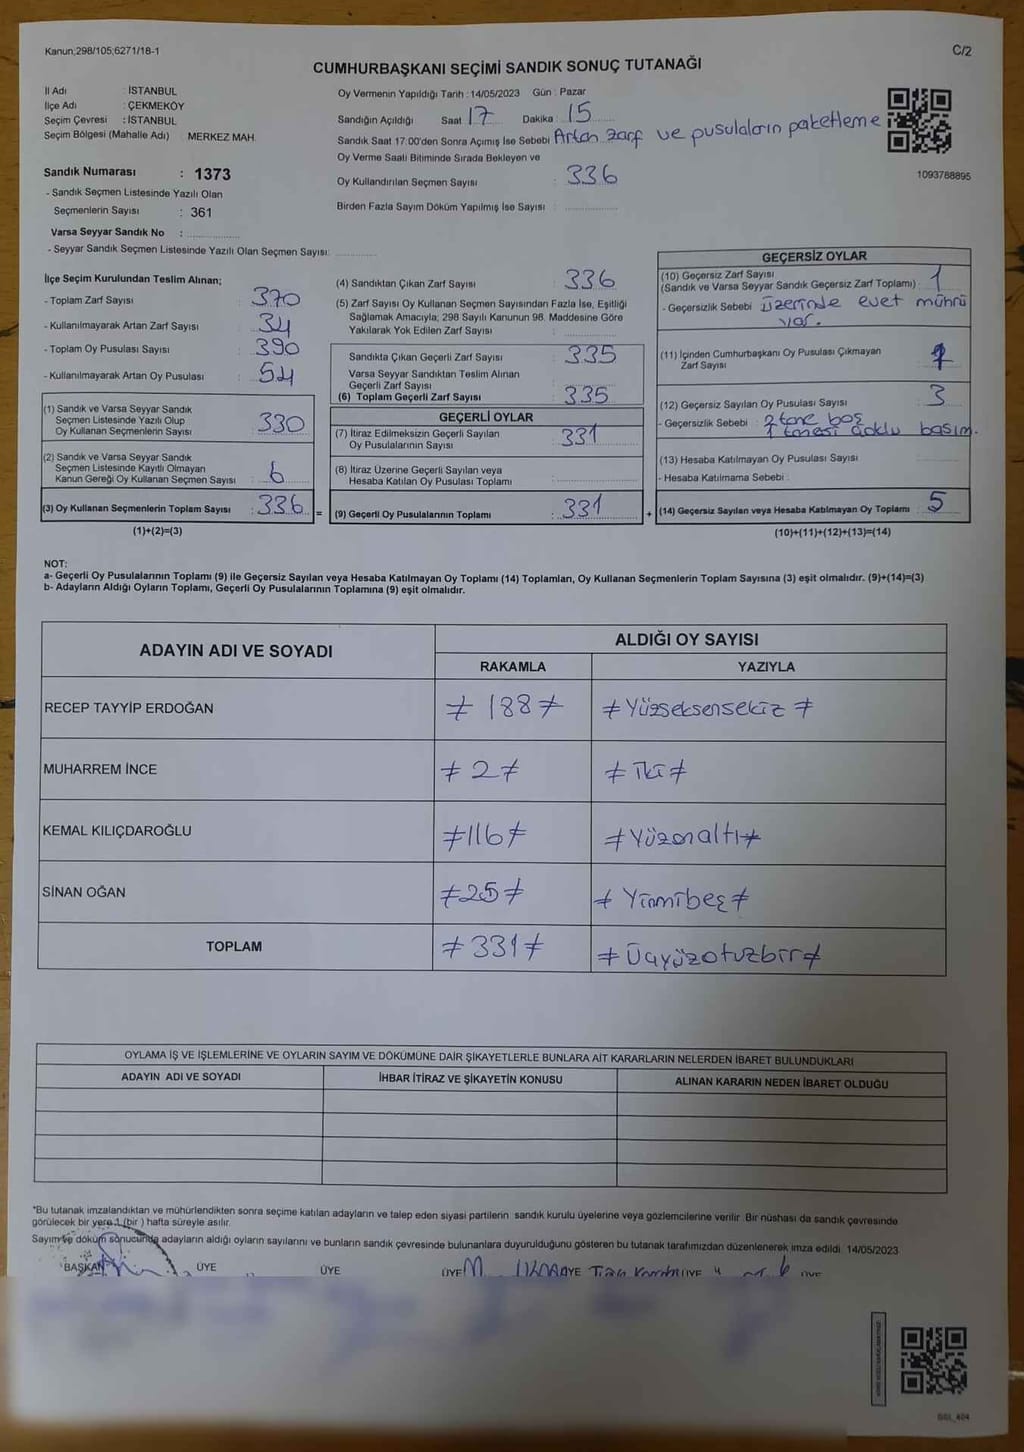 Kanun;298/105;6271/18-1
C/2
CUMHURBAŞKANI SEÇİMİ SANDIK SONUÇ TUTANAĞI
İl Adı : İSTANBUL
İlçe Adı : ÇEKMEKÖY
Seçim Çevresi : İSTANBUL
Seçim Bölgesi (Mahalle Adı) : MERKEZ MAH.
Sandık Numarası : 1373
- Sandık Seçmen Listesinde Yazılı Olan
Seçmenlerin Sayısı : 361
Varsa Seyyar Sandık No :
- Seyyar Sandık Seçmen Listesinde Yazılı Olan Seçmen Sayısı:
Oy Vermenin Yapıldığı Tarih : 14/05/2023 Gün : Pazar
Sandığın Açıldığı Saat 17 Dakika : 15
Sandık Saat 17:00'den Sonra Açımış İse Sebebi Artan zarf ve pusulaların paketleme
Oy Verme Saati Bitiminde Sırada Bekleyen ve
Oy Kullandırılan Seçmen Sayısı : 336
Birden Fazla Sayım Döküm Yapılmış İse Sayısı :
1093788895
İlçe Seçim Kurulundan Teslim Alınan;
- Toplam Zarf Sayısı : 370
- Kullanılmayarak Artan Zarf Sayısı : 34
- Toplam Oy Pusulası Sayısı : 390
- Kullanılmayarak Artan Oy Pusulası : 54
(1) Sandık ve Varsa Seyyar Sandık
Seçmen Listesinde Yazılı Olup
Oy Kullanan Seçmenlerin Sayısı : 330
(2) Sandık ve Varsa Seyyar Sandık
Seçmen Listesinde Kayıtlı Olmayan
Kanun Gereği Oy Kullanan Seçmen Sayısı : 6
(3) Oy Kullanan Seçmenlerin Toplam Sayısı : 336 =
(1)+(2)=(3)
(4) Sandıktan Çıkan Zarf Sayısı : 336
(5) Zarf Sayısı Oy Kullanan Seçmen Sayısından Fazla İse, Eşitliği
Sağlamak Amacıyla; 298 Sayılı Kanunun 98. Maddesine Göre
Yakılarak Yok Edilen Zarf Sayısı :
Sandıkta Çıkan Geçerli Zarf Sayısı : 335
Varsa Seyyar Sandıktan Teslim Alınan
Geçerli Zarf Sayısı :
(6) Toplam Geçerli Zarf Sayısı : 335
GEÇERLİ OYLAR
(7) İtiraz Edilmeksizin Geçerli Sayılan
Oy Pusulalarının Sayısı : 331
(8) İtiraz Üzerine Geçerli Sayılan veya
Hesaba Katılan Oy Pusulası Toplamı :
(9) Geçerli Oy Pusulalarının Toplamı : 331 +
GEÇERSİZ OYLAR
(10) Geçersiz Zarf Sayısı
(Sandık ve Varsa Seyyar Sandık Geçersiz Zarf Toplamı) : 1
- Geçersizlik Sebebi : üzerinde evet mührü
var.
(11) İçinden Cumhurbaşkanı Oy Pusulası Çıkmayan
Zarf Sayısı : 1
(12) Geçersiz Sayılan Oy Pusulası Sayısı : 3
- Geçersizlik Sebebi : 2 tane boş
1 tanesi çoklu basım.
(13) Hesaba Katılmayan Oy Pusulası Sayısı :
- Hesaba Katılmama Sebebi :
(14) Geçersiz Sayılan veya Hesaba Katılmayan Oy Toplamı : 5
(10)+(11)+(12)+(13)=(14)
NOT:
a- Geçerli Oy Pusulalarının Toplamı (9) ile Geçersiz Sayılan veya Hesaba Katılmayan Oy Toplamı (14) Toplamları, Oy Kullanan Seçmenlerin Toplam Sayısına (3) eşit olmalıdır. (9)+(14)=(3)
b- Adayların Aldığı Oyların Toplamı, Geçerli Oy Pusulalarının Toplamına (9) eşit olmalıdır.
ADAYIN ADI VE SOYADI
ALDIĞI OY SAYISI
RAKAMLA YAZIYLA
RECEP TAYYİP ERDOĞAN ≠ 188 ≠ ≠ Yüzseksensekiz ≠
MUHARREM İNCE ≠ 2 ≠ ≠ İki ≠
KEMAL KILIÇDAROĞLU ≠ 116 ≠ ≠ Yüzonaltı ≠
SİNAN OĞAN ≠ 25 ≠ ≠ Yirmibeş ≠
TOPLAM ≠ 331 ≠ ≠ Üçyüzotuzbir ≠
OYLAMA İŞ VE İŞLEMLERİNE VE OYLARIN SAYIM VE DÖKÜMÜNE DAİR ŞİKAYETLERLE BUNLARA AİT KARARLARIN NELERDEN İBARET BULUNDUKLARI
ADAYIN ADI VE SOYADI İHBAR İTİRAZ VE ŞİKAYETİN KONUSU ALINAN KARARIN NEDEN İBARET OLDUĞU
*Bu tutanak imzalandıktan ve mühürlendikten sonra seçime katılan adayların ve talep eden siyasi partilerin sandık kurulu üyelerine veya gözlemcilerine verilir. Bir nüshası da sandık çevresinde
görülecek bir yere 1 (bir ) hafta süreyle asılır.
Sayım ve döküm sonucunda adayların aldığı oyların sayılarını ve bunların sandık çevresinde bulunanlara duyurulduğunu gösteren bu tutanak tarafımızdan düzenlenerek imza edildi. 14/05/2023
BAŞKAN ÜYE ÜYE ÜYE ÜYE ÜYE ÜYE